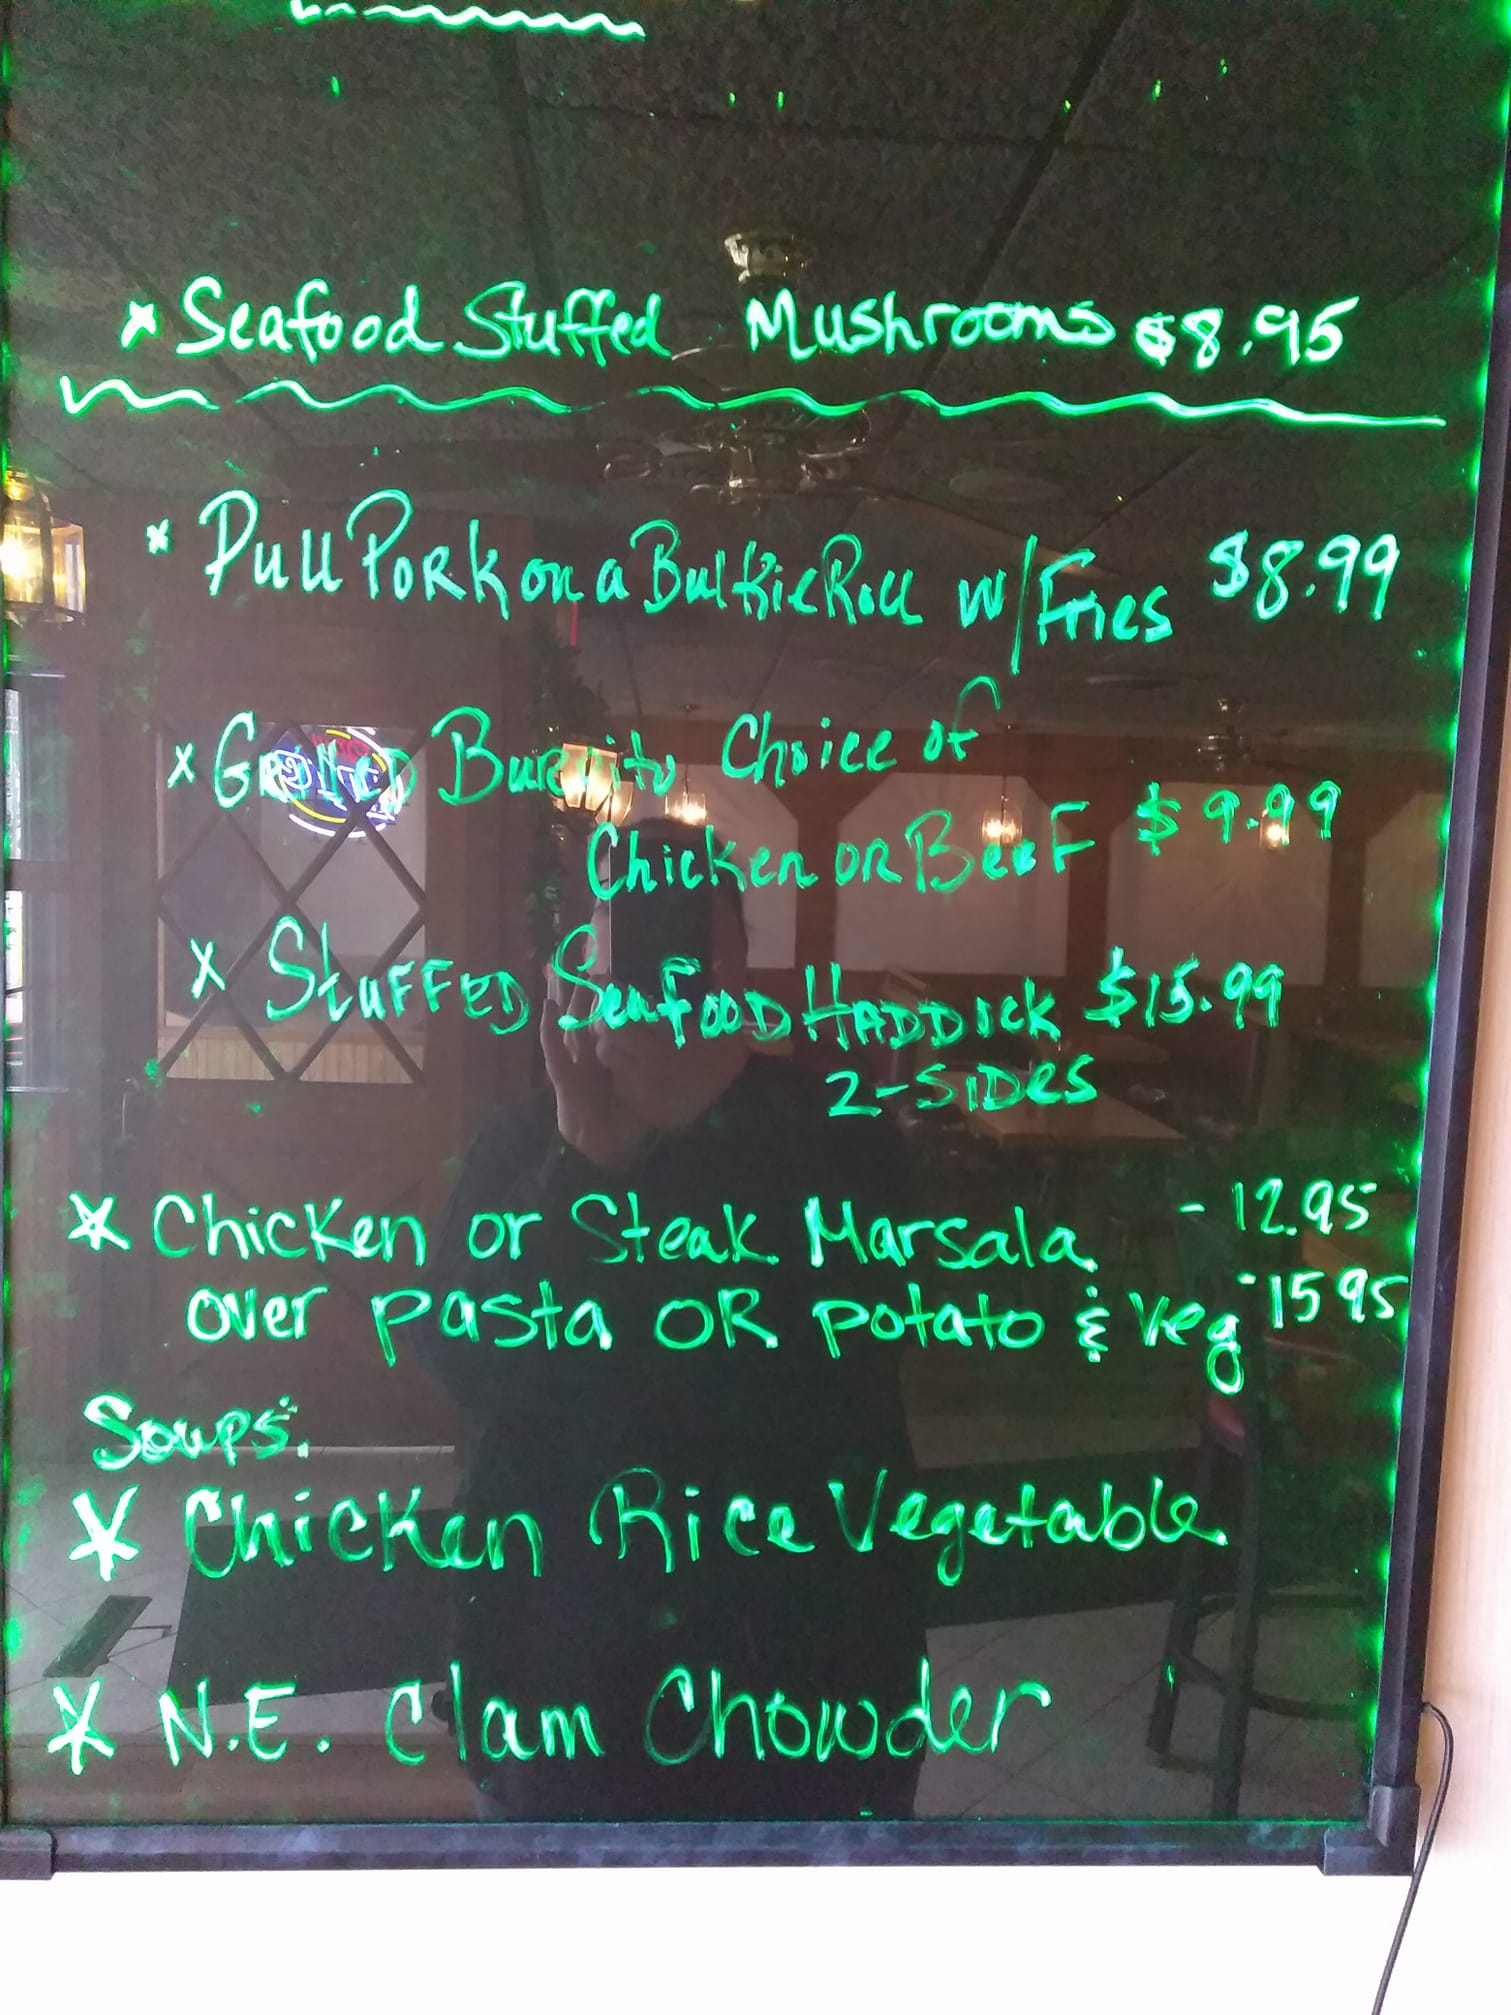 * Seafood Stuffed Mushrooms $8.95
* Pull Pork on a Bulkie Roll w/Fries $8.99
x Grilled Burrito Choice of
Chicken or Beef $9.99
x Stuffed Seafood Haddick $15.99
2-Sides
* Chicken or Steak Marsala - 12.95
over pasta OR potato & veg - 15 95
Soups:
* Chicken Rice Vegetable
* N.E. Clam Chowder